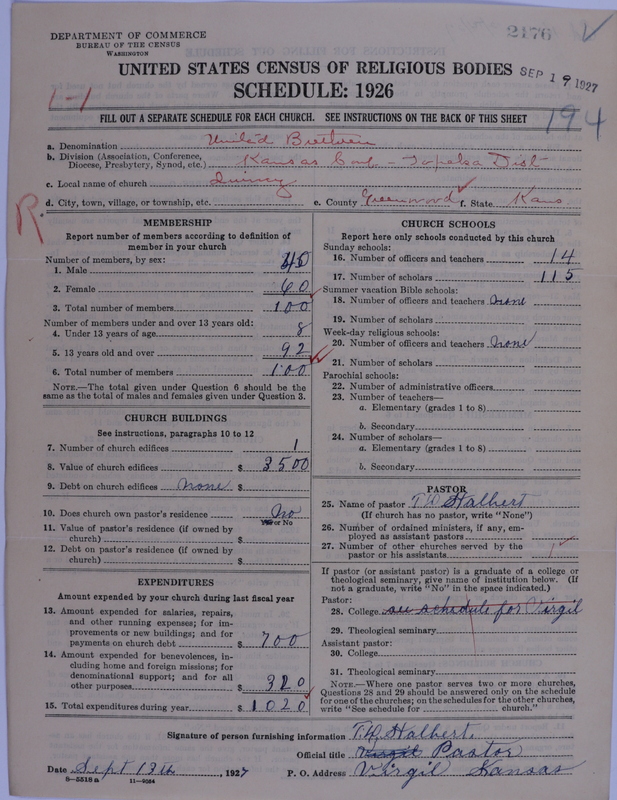 DEPARTMENT OF COMMERCE
BUREAU OF THE CENSUS
WASHINGTON
2176
UNITED STATES CENSUS OF RELIGIOUS BODIES
SEP 19 1927
SCHEDULE: 1926
1-1
194
FILL OUT A SEPARATE SCHEDULE FOR EACH CHURCH. SEE INSTRUCTIONS ON THE BACK OF THIS SHEET
a. Denomination United Brethren
b. Division (Association, Conference, Diocese, Presbytery, Synod, etc.) Kansas Conf - Topeka Dist
c. Local name of church Quincy
d. City, town, village, or township, etc. e. County Greenwood f. State Kans
R
MEMBERSHIP
Report number of members according to definition of
member in your church
Number of members, by sex:
1. Male 40
2. Female 60
3. Total number of members 100
Number of members under and over 13 years old:
4. Under 13 years of age 8
5. 13 years old and over 92
6. Total number of members 100
NOTE.—The total given under Question 6 should be the
same as the total of males and females given under Question 3.
CHURCH BUILDINGS
See instructions, paragraphs 10 to 12
7. Number of church edifices 1
8. Value of church edifices $ 3500
9. Debt on church edifices none $
10. Does church own pastor's residence No
Yes or No
11. Value of pastor's residence (if owned by
church) $
12. Debt on pastor's residence (if owned by
church) $
EXPENDITURES
Amount expended by your church during last fiscal year
13. Amount expended for salaries, repairs,
and other running expenses; for im-
provements or new buildings; and for
payments on church debt $ 700
14. Amount expended for benevolences, in-
cluding home and foreign missions; for
denominational support; and for all
other purposes $ 320
15. Total expenditures during year $ 1020
CHURCH SCHOOLS
Report here only schools conducted by this church
Sunday schools:
16. Number of officers and teachers 14
17. Number of scholars 115
Summer vacation Bible schools:
18. Number of officers and teachers None
19. Number of scholars
Week-day religious schools:
20. Number of officers and teachers None
21. Number of scholars
Parochial schools:
22. Number of administrative officers
23. Number of teachers—
a. Elementary (grades 1 to 8)
b. Secondary
24. Number of scholars—
a. Elementary (grades 1 to 8)
b. Secondary
PASTOR
25. Name of pastor T.W. Halbert
(If church has no pastor, write "None")
26. Number of ordained ministers, if any, em-
ployed as assistant pastors
27. Number of other churches served by the
pastor or his assistants 1
If pastor (or assistant pastor) is a graduate of a college or
theological seminary, give name of institution below. (If
not a graduate, write "No" in the space indicated.)
Pastor:
28. College see schedule for Virgil
29. Theological seminary
Assistant pastor:
30. College
31. Theological seminary
NOTE.—Where one pastor serves two or more churches,
Questions 28 and 29 should be answered only on the schedule
for one of the churches; on the schedules for the other churches,
write "See schedule for church."
Signature of person furnishing information T.W. Halbert
Official title Virgil Pastor
Date Sept 13th, 1927 P. O. Address Virgil Kansas
8—5518a 11—9034